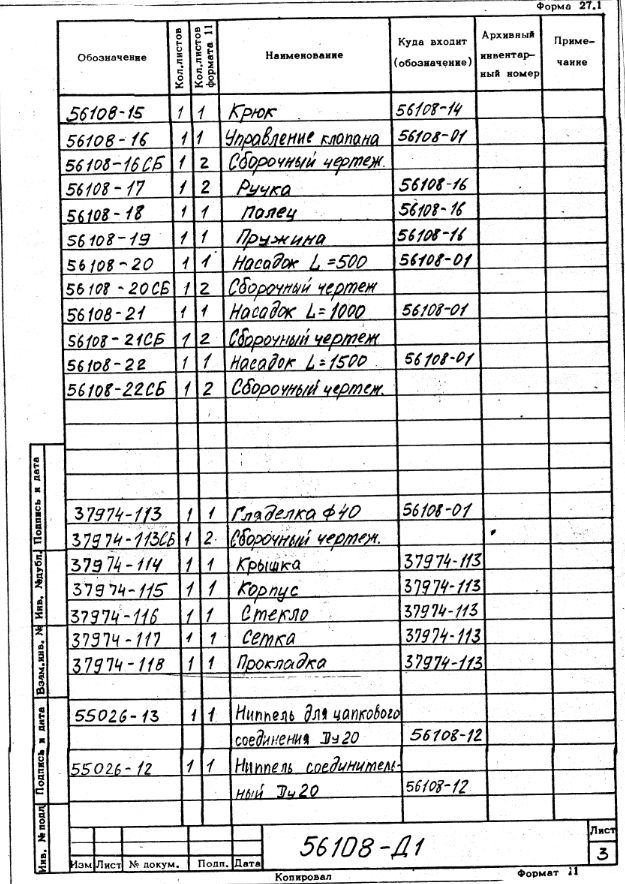 Форма 27.1
Обозначение Кол.листов Кол.листов формата 11 Наименование Куда входит (обозначение) Архивный инвентарный номер Примечание
56108-15 1 1 Крюк 56108-14
56108-16 1 1 Управление клапана 56108-01
56108-16СБ 1 2 Сборочный чертеж.
56108-17 1 2 Ручка 56108-16
56108-18 1 1 Палец 56108-16
56108-19 1 1 Пружина 56108-16
56108-20 1 1 Насадок L=500 56108-01
56108-20СБ 1 2 Сборочный чертеж
56108-21 1 1 Насадок L=1000 56108-01
56108-21СБ 1 2 Сборочный чертеж
56108-22 1 1 Насадок L=1500 56108-01
56108-22СБ 1 2 Сборочный чертеж.
37974-113 1 1 Гляделка ф40 56108-01
37974-113СБ 1 2 Сборочный чертеж.
37974-114 1 1 Крышка 37974-113
37974-115 1 1 Корпус 37974-113
37974-116 1 1 Стекло 37974-113
37974-117 1 1 Сетка 37974-113
37974-118 1 1 Прокладка 37974-113
55026-13 1 1 Ниппель для цапкового
соединения Ду20 56108-12
55026-12 1 1 Ниппель соединитель-
ный Ду20 56108-12
Инв. № подл Подпись и дата Взам.инв. № Инв. №дубл. Подпись и дата
56108-Д1
Лист
3
Изм Лист № докум. Подп. Дата
Копировал Формат 11